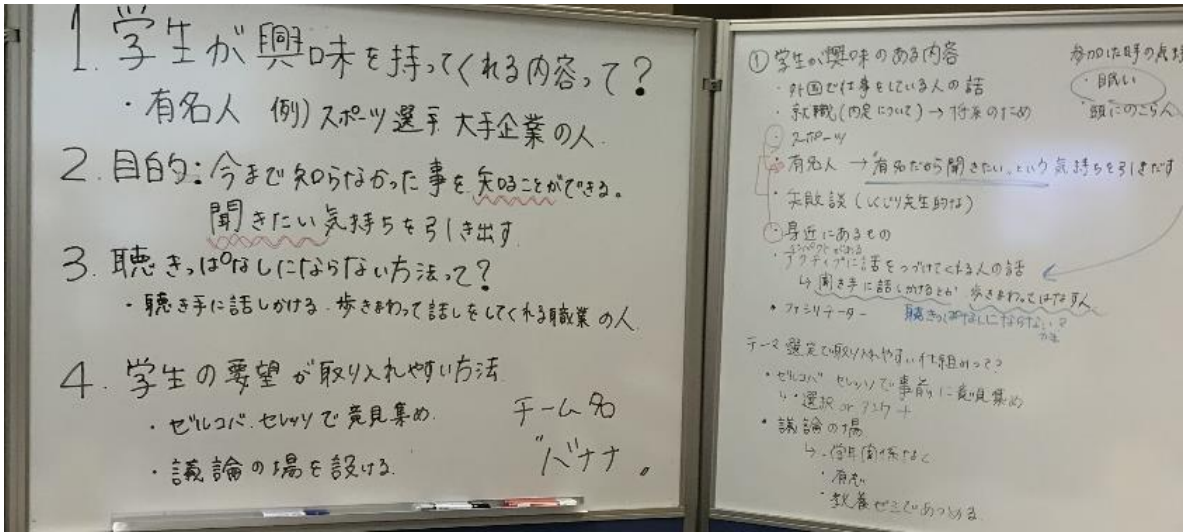 1. 学生が興味を持ってくれる内容って?
・有名人 例)スポーツ選手 大手企業の人.
2. 目的:今まで知らなかった事を知ることができる。
聞きたい気持ちを引き出す.
3. 聴きっぱなしにならない方法って?
・聴き手に話しかける.歩きまわって話しをしてくれる職業の人.
4. 学生の要望が取り入れやすい方法
・ゼルコバ.セレッソで意見集め.
・議論の場を設ける.
チーム名
"バナナ。
① 学生が興味のある内容
・外国で仕事をしている人の話
・就職(内定について)→将来のため
・スポーツ
・有名人 →"有名だから聞きたい"という気持ちを引きだす
・失敗談(しくじり先生的な)
・身近にあるもの
・アクティブに話をつづけてくれる人の話
↳ 聞き手に話しかけるとか 歩きまわってはなす人
・ファシリテーター
聴きっぱなしにならない?
方法
参加した時の気持
・眠い
頭にのこらん
テーマ選定で取り入れやすい仕組みって?
・ゼルコバ セレッソで事前に意見集め
↳・選択 or アンケート
・議論の場
↳・学年関係なく
・有志
・教養ゼミであつめる